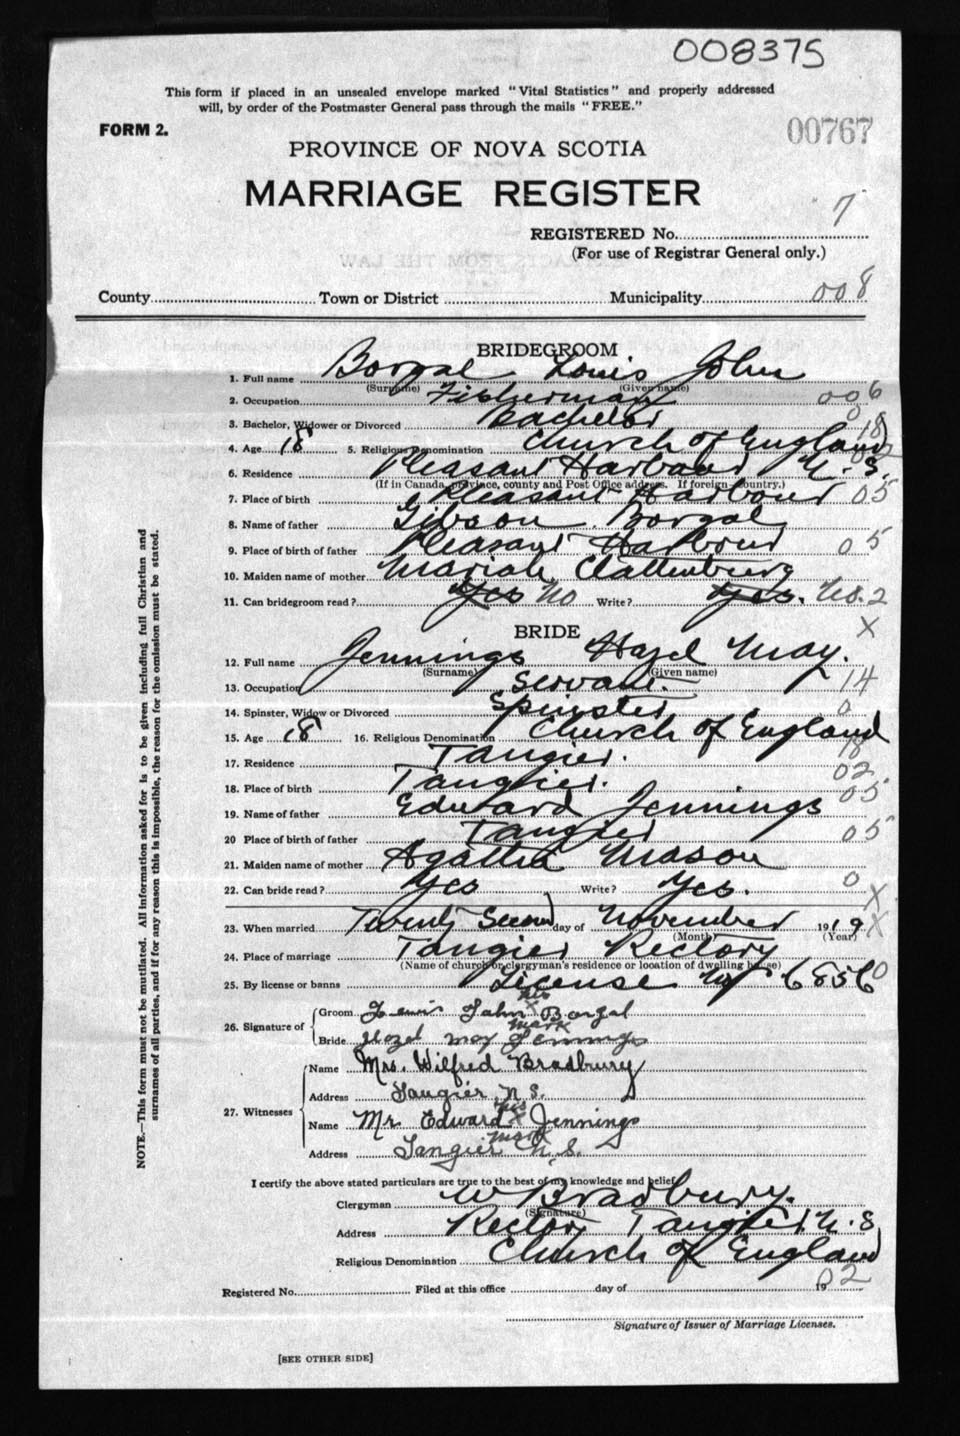 008375
This form if placed in an unsealed envelope marked "Vital Statistics" and properly addressed
will, by order of the Postmaster General pass through the mails "FREE."
FORM 2.
00767
PROVINCE OF NOVA SCOTIA
MARRIAGE REGISTER
7
REGISTERED No.
(For use of Registrar General only.)
County Town or District Municipality 008
BRIDEGROOM
1. Full name Borgal Louis John
(Surname) (Given name)
2. Occupation Fisherman 006
3. Bachelor, Widower or Divorced Bachelor 0
4. Age 18 5. Religious Denomination Church of England 18
6. Residence Pleasant Harbour N.S.
(If in Canada, province, county and Post Office address. If foreign country.)
7. Place of birth Pleasant Harbour 05
8. Name of father Gibson Borgal
9. Place of birth of father Pleasant Harbour 05
10. Maiden name of mother Mariah Clattenburg
11. Can bridegroom read? Yes No Write? Yes. No. 2
BRIDE X
12. Full name Jennings Hazel May.
(Surname) (Given name)
13. Occupation Servant. 14
14. Spinster, Widow or Divorced Spinster 0
15. Age 18 16. Religious Denomination Church of England
17. Residence Tangier. 18
18. Place of birth Tangier. 02
19. Name of father Edward Jennings 05
20 Place of birth of father Tangier 05
21. Maiden name of mother Agatha Mason
22. Can bride read? Yes Write? Yes. 0
X
23. When married Twenty Second day of November 1919 X
(Month) (Year)
24. Place of marriage Tangier Rectory
(Name of church or clergyman's residence or location of dwelling house)
25. By license or banns License No 6856 0
his
26. Signature of Groom Lewis John X Borgal
mark
Bride Hazel May Jennings
27. Witnesses Name Mrs. Wilfred Bradbury
Address Tangier, N.S.
his
Name Mr Edward X Jennings
mark
Address Tangier N.S.
I certify the above stated particulars are true to the best of my knowledge and belief
Clergyman W Bradbury.
(Signature)
Address Rector Tangier, N.S
Religious Denomination Church of England
02
Registered No. Filed at this office day of 19
Signature of Issuer of Marriage Licenses.
[SEE OTHER SIDE]
NOTE.—This form must not be mutilated. All information asked for is to be given including full Christian and
surnames of all parties, and if for any reason this is impossible, the reason for the omission must be stated.